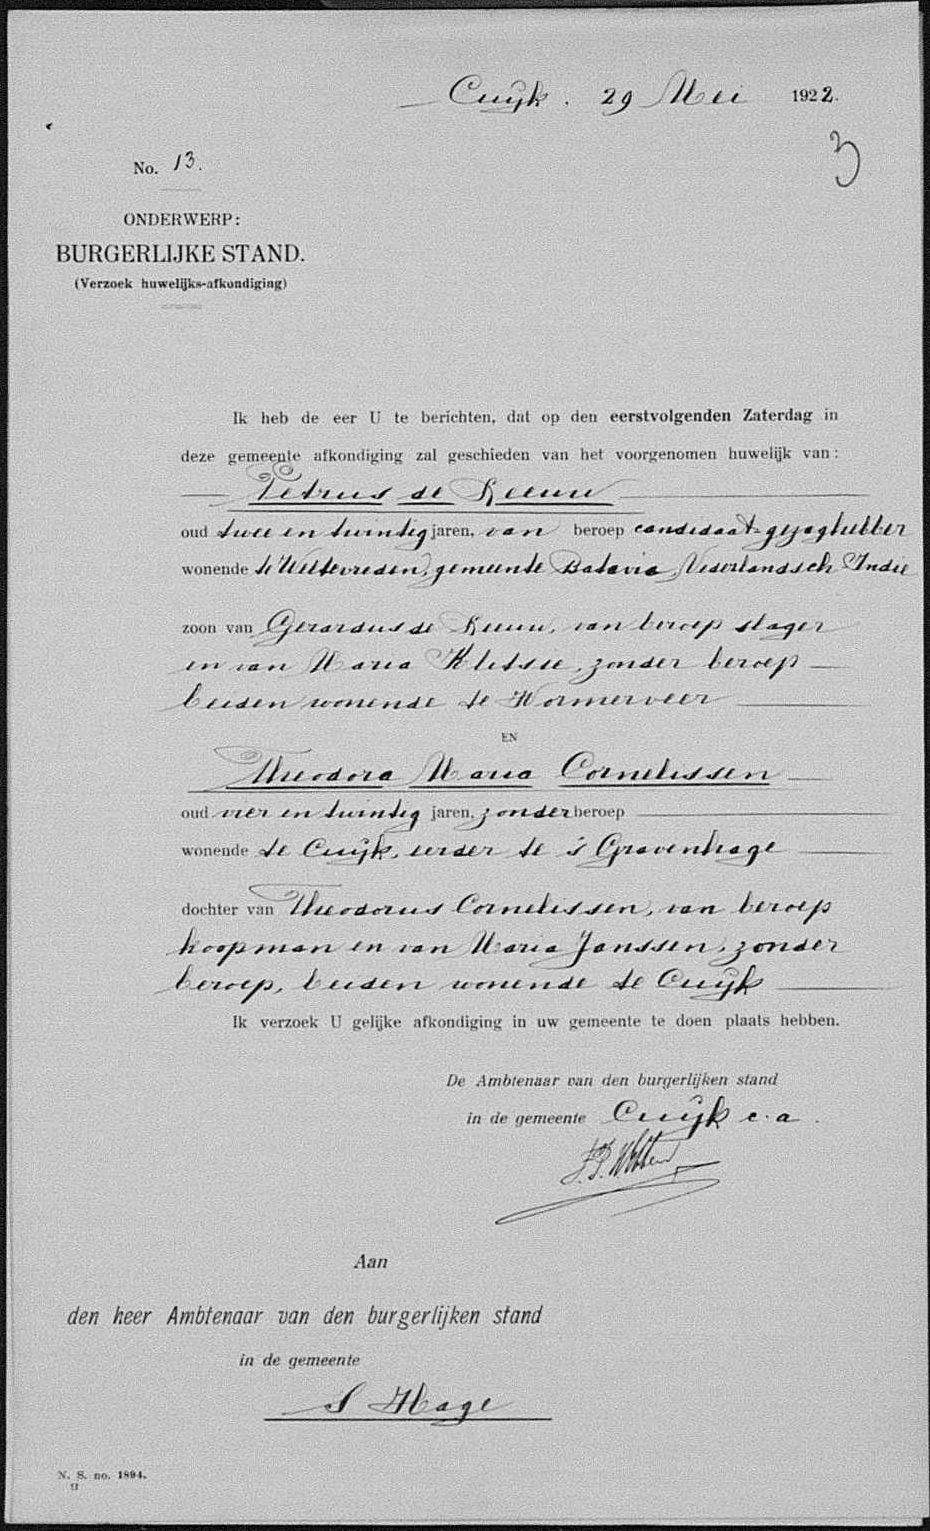 Cuyk. 29 Mei 1922.
3
No. 13.
ONDERWERP:
BURGERLIJKE STAND.
(Verzoek huwelijks-afkondiging)
Ik heb de eer U te berichten, dat op den eerstvolgenden Zaterdag in
deze gemeente afkondiging zal geschieden van het voorgenomen huwelijk van:
Petrus de Leeuw
oud twee en twintig jaren, van beroep candidaat-gezaghebber
wonende te Weltevreden, gemeente Batavia, Nederlandsch Indië
zoon van Gerardus de Leeuw, van beroep slager
en van Maria Kletsie, zonder beroep
beiden wonende te Wormerveer
EN
Theodora Maria Cornelissen
oud vier en twintig jaren, zonder beroep
wonende te Cuijk, eerder te 's Gravenhage
dochter van Theodorus Cornelissen, van beroep
koopman en van Maria Janssen, zonder
beroep, beiden wonende te Cuijk
Ik verzoek U gelijke afkondiging in uw gemeente te doen plaats hebben.
De Ambtenaar van den burgerlijken stand
in de gemeente Cuijk c.a.
Aan
den heer Ambtenaar van den burgerlijken stand
in de gemeente
S Hage
N. S. no. 1894.